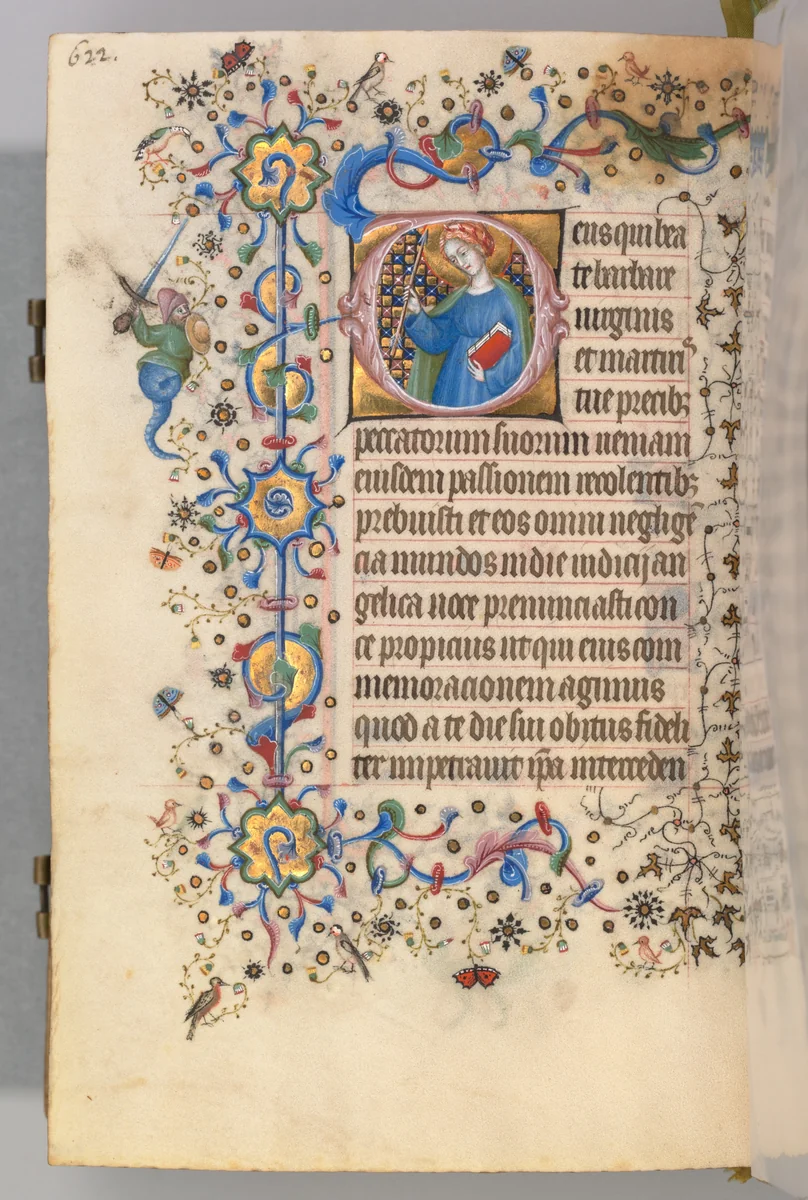 622.
Deus qui bea
te barbare
uirginis
et martiris
tue precibz
peccatorum suorum ueniam
eiusdem passionem recolentibz
prebuisti et eos omni neglige
cia mundos in die iudicij an
gelica uoce prenunciasti con
ce propicius ut qui eius com
memoracionem agimus
quod a te die sui obitus fideli
ter impetrauit ip̄a interceden